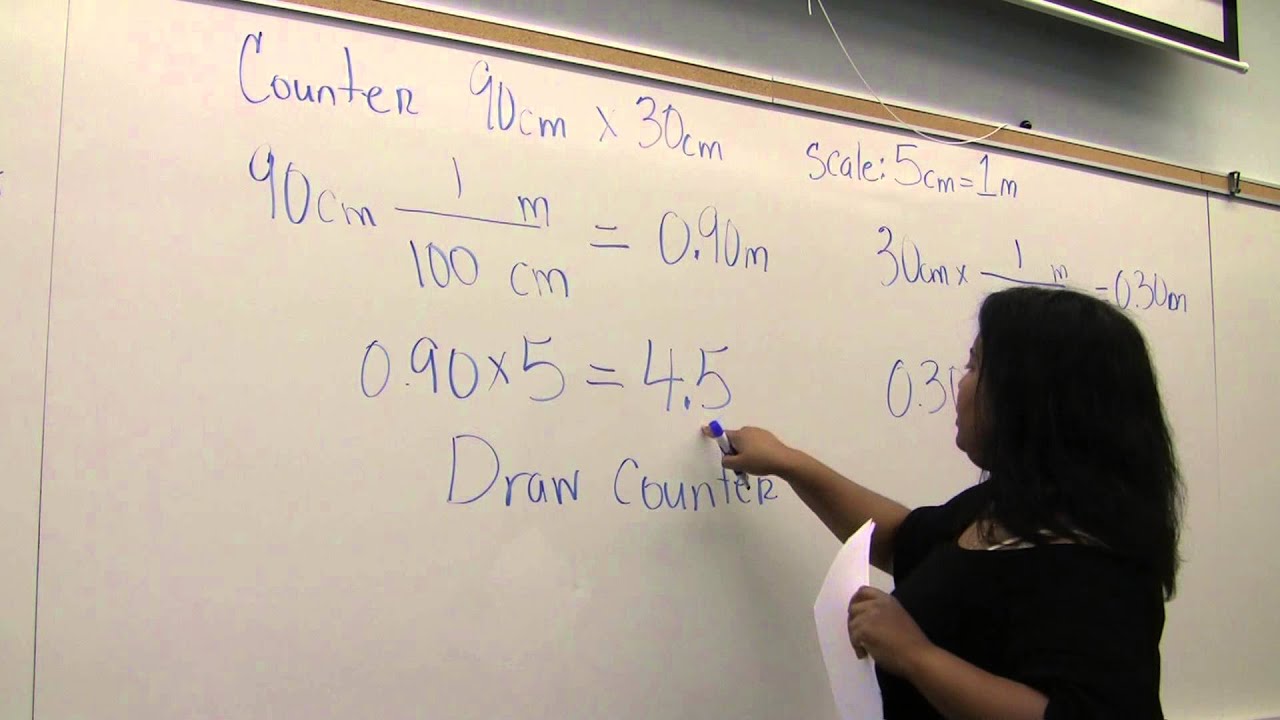 Counter 90cm x 30cm
Scale: 5cm = 1m
90cm 1 m
100 cm
= 0.90m
30cm x 1 m = 0.30m
0.90 x 5 = 4.5
0.30
Draw Counter